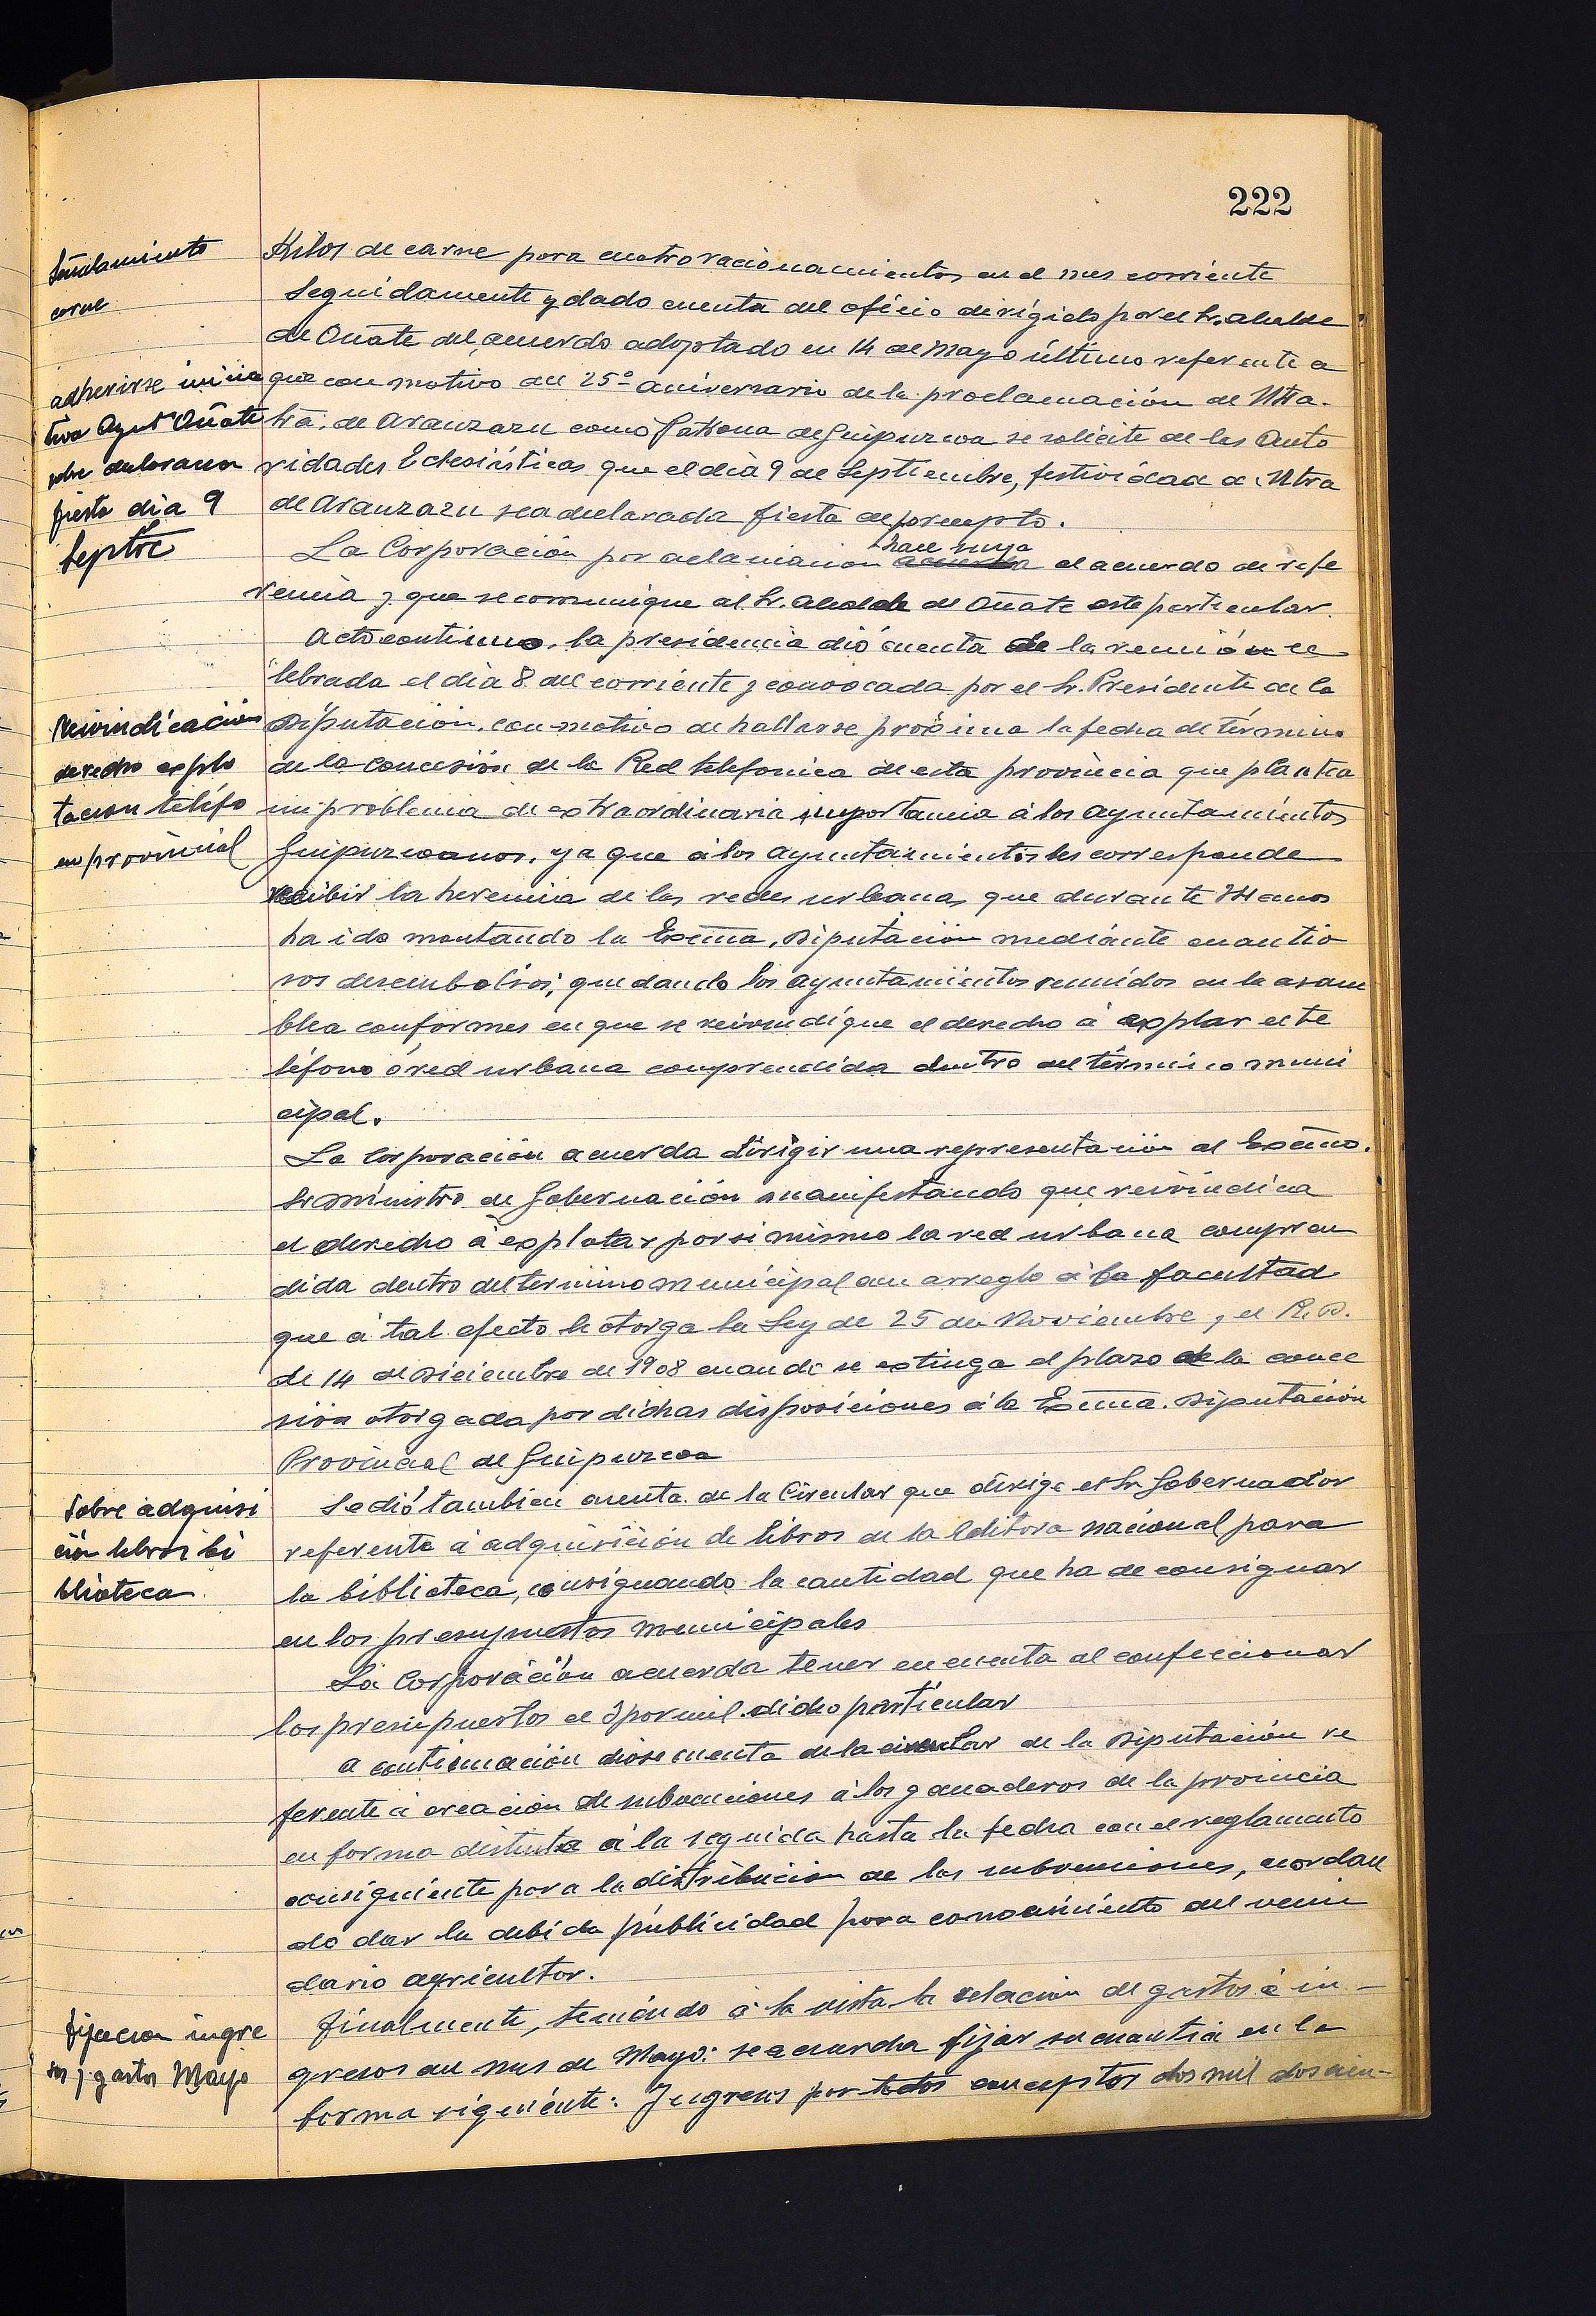 222
Señalamiento
carne
Kilos de carne para cuatro racionamientos en el mes corriente
Seguidamente y dado cuenta del oficio dirigido por el Sr. Alcalde
de Oñate del acuerdo adoptado en 14 de Mayo último referente a
adherirse inicia
tiva Aytº Oñate
sobre declaracion
fiesta dia 9
Septre
que con motivo del 25º aniversario de la proclamación de Ntra.
Sra. de Aranzazu como Patrona de Guipuzcoa se solicite de las Auto
ridades Eclesiásticas que el dia 9 de Septiembre, festividad de Ntra
de Aranzazu sea declarada fiesta de precepto.
La Corporación por aclamacion hace suya el acuerdo de refe
rencia y que se comunique al Sr. Alcalde de Oñate este particular.
Acto continuo, la presidencia dió cuenta de la reunión ce
lebrada el dia 8 del corriente y convocada por el Sr. Presidente de la
Reivindicacion
derecho explo
tacion teléfo
en provincial
Diputación, con motivo de hallarse próxima la fecha de término
de la concesión de la Red telefonica de esta provincia que plantea
un problema de extraordinaria importancia á los ayuntamientos
Guipuzcoanos, ya que á los ayuntamientos les corresponde
recibir la herencia de las redes urbanas que durante anos
ha ido montando la Excma. Diputación mediante cuantio
sos desembolsos; quedando los ayuntamientos reunidos en la asam
blea conformes en que se reivindique el derecho á explar el te
léfono ó red urbana comprendida dentro del término muni
cipal.
La Corporación acuerda dirigir una representación al Excmo.
Sr Ministro de Gobernación manifestando que reivindica
el derecho á explotar por si mismo la red urbana compren
dida dentro del termino municipal con arreglo á la facultad
que á tal efecto le otorga la Ley de 25 de Noviembre y el R.D.
de 14 de Diciembre de 1908 cuando se extinga el plazo de la conce
sión otorgada por dichas disposiciones á la Excma. Diputación
Provincial de Guipuzcoa
Sobre adquisi
ción libros bi
blioteca.
Se dió tambien cuenta de la Circular que dirige el Sr Gobernador
referente á adquisición de libros de la Editora nacional para
la biblioteca, consignando la cantidad que ha de consignar
en los presupuestos municipales
La Corporación acuerda tener en cuenta al confeccionar
los presupuestos el por mil dicho particular
A continuación diose cuenta de la circular de la Diputación re
ferente á creación de subvenciones á los ganaderos de la provincia
en forma distinta á la seguida hasta la fecha con el reglamento
consiguiente para la distribucion de las subvenciones, acordan
do dar la debida publicidad para conocimiento del vecin
dario agricultor.
fijacion ingre
sos y gastos Mayo
Finalmente, teniendo á la vista la relacion de gastos é in-
gresos del mes de Mayo: se acuerda fijar su cuantia en la
forma siguiente: Ingresos por todos conceptos dos mil doscien-